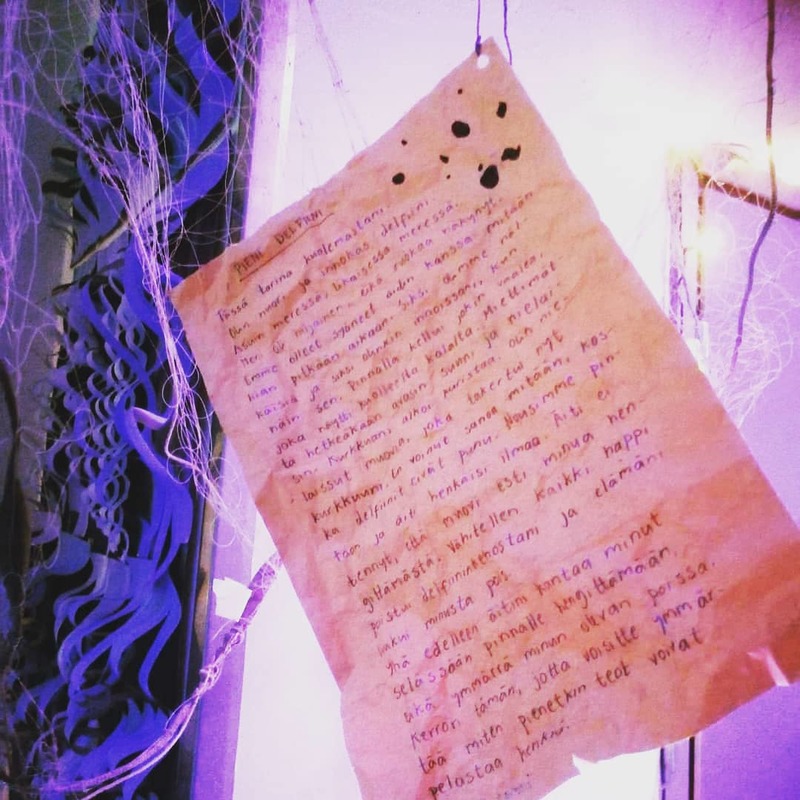 PIENI DELFIINI
Tässä tarina kuolemastani.
Olin nuori ja innokas delfiini.
Asuin meressä, likaisessa meressä.
Meri oli miljainen, eikä ruokaa näkynyt.
Emme olleet syöneet äidin kanssa mitään
pitkään aikaan, siksi olimme näl-
käisiä ja siksi olimme innoissani, kun
näin sen. Pinnalla kellui jokin vaalea,
joka näytti kuolleelta kalalta. Miettimät-
tä hetkeäkään avasin suuni ja nielai-
sin. Kurkkuani alkoi kuristaa, olin nie-
laissut muovia, joka takertui nyt
kurkkuuni. En voinut sanoa mitään, kos-
ka delfiinit eivät puhu. Nousimme pin-
taan ja äiti henkäisi ilmaa. Äiti ei
tiennyt, että muovi esti minua hen-
gittämästä. Vähitellen kaikki happi
poistui delfiininkehostani ja elämäni
valui minusta pois.
Yhä edelleen äitini kantaa minut
selässään pinnalle hengittämään,
eikä ymmärrä minun olevan poissa.
Kerron tämän, jotta voisitte ymmär-
tää miten pienetkin teot voivat
pelastaa henkiä.